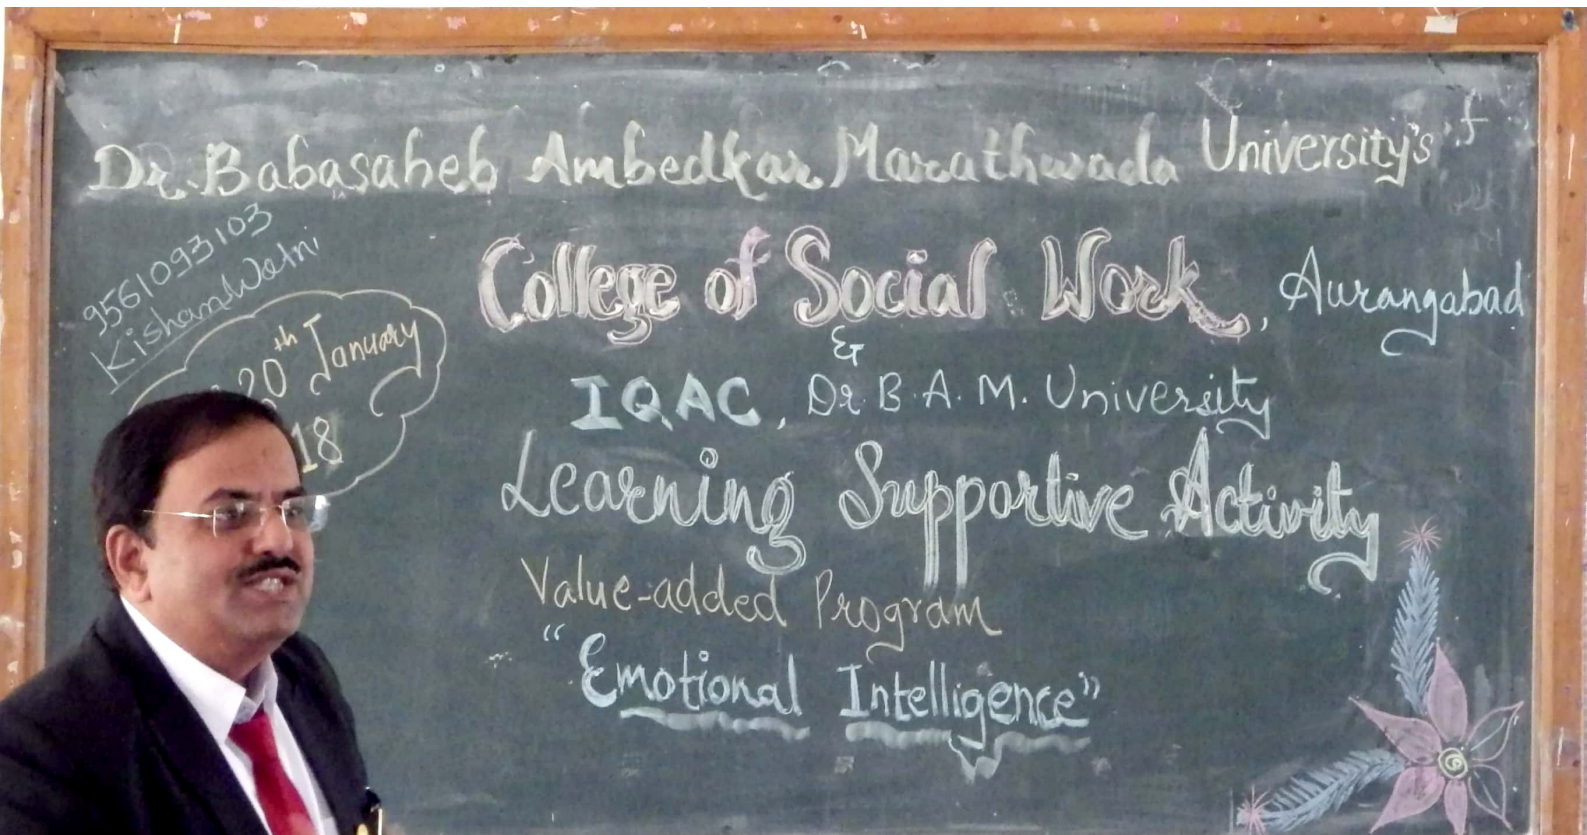 Dr. Babasaheb Ambedkar Marathwada University's
9561093103
College of Social Work, Aurangabad
&
20th January
18
IQAC, Dr B.A.M. University
Learning Supportive Activity
Value-added Program
"Emotional Intelligence"